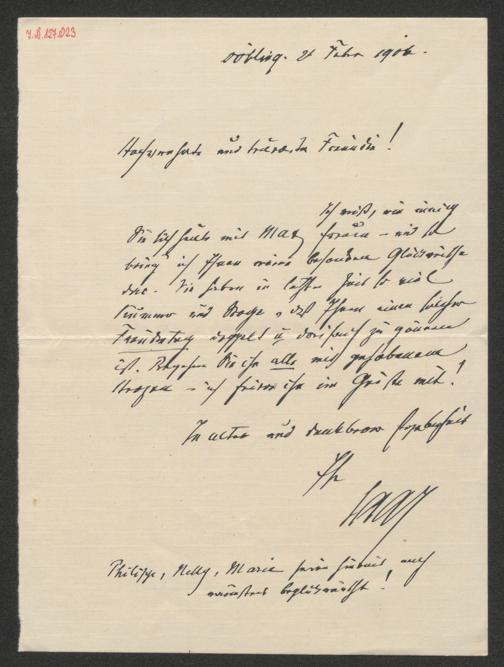 I.N. 127.023
Döbling. 2 Febr 1906.
Hochverehrte und teuerste Freundin!
Ich weiß, wie innig
Sie sich heute mit Max freuen – und so
bring' ich Ihnen meine besonderen Glückwünsche
dar. Sie haben in letzter Zeit so viel
Kummer und Sorge, daß Ihnen einen solchen
Freudentag doppelt u dreifach zu gönnen
ist. Begehen Sie ihn alle mit gehobenem
Herzen – ich feiere ihn im Geiste mit!
In alter und dankbarer Ergebenheit
Ihr
Saar
Philipp, Nelly, Marie seien hiemit auch
wärmstens beglückwünscht!